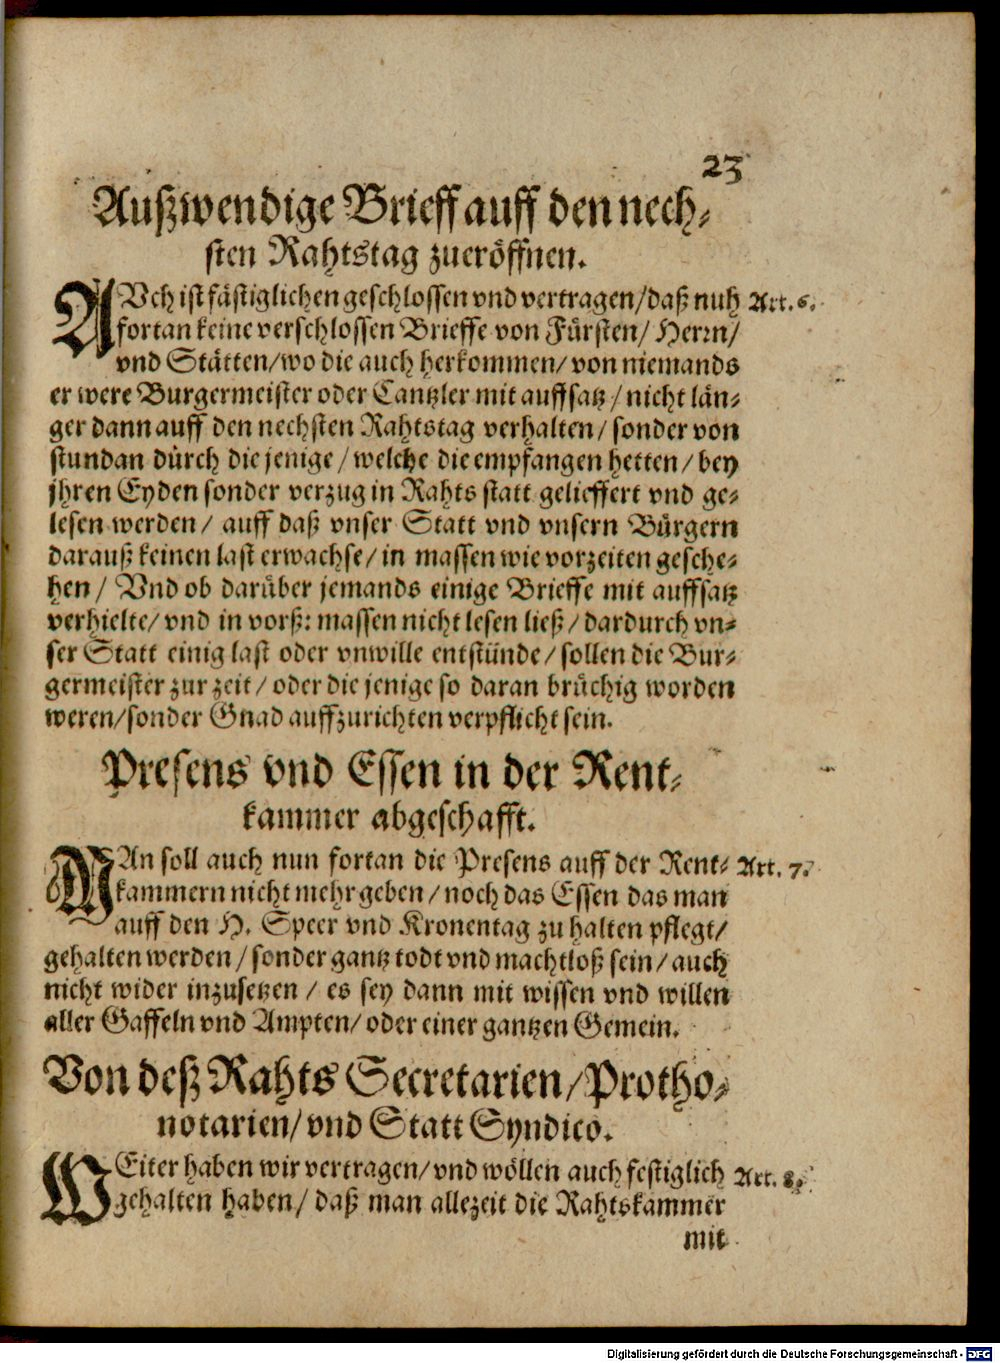 23
Außwendige Brieff auff den nech-
sten Rahtstag zueröffnen.
AVch ist fästiglichen geschlossen vnd vertragen/ daß nuh Art. 6.
fortan keine verschlossen Brieffe von Fürsten/ Herrn/
vnd Stätten/ wo die auch herkommen/ von niemands
er were Burgermeister oder Cantzler mit auffsatz/ nicht län-
ger dann auff den nechsten Rahtstag verhalten/ sonder von
stundan dürch die jenige/ welche die empfangen hetten/ bey
jhren Eyden sonder verzug in Rahts statt gelieffert vnd ge-
lesen werden/ auff daß vnser Statt vnd vnsern Bürgern
darauß keinen last erwachse/ in massen wie vorzeiten gesche-
hen/ Vnd ob darüber jemands einige Brieffe mit auffsatz
verhielte/ vnd in vorß: massen nicht lesen ließ/ dardurch vn-
ser Statt einig last oder vnwille entstünde/ sollen die Bur-
germeister zur zeit/ oder die jenige so daran brüchig worden
weren/ sonder Gnad auffzurichten verpflicht sein.
Presens vnd Essen in der Rent-
kammer abgeschafft.
MAn soll auch nun fortan die Presens auff der Rent- Art. 7.
kammern nicht mehr geben/ noch das Essen das man
auff den H. Speer vnd Kronentag zu halten pflegt/
gehalten werden/ sonder gantz todt vnd machtloß sein/ auch
nicht wider inzusetzen/ es sey dann mit wissen vnd willen
aller Gaffeln vnd Ampten/ oder einer gantzen Gemein.
Von deß Rahts Secretarien/ Protho-
notarien/ vnd Statt Syndico.
WEiter haben wir vertragen/ vnd wöllen auch festiglich Art. 8.
gehalten haben/ daß man allezeit die Rahtskammer
mit
Digitalisierung gefördert durch die Deutsche Forschungsgemeinschaft - DFG